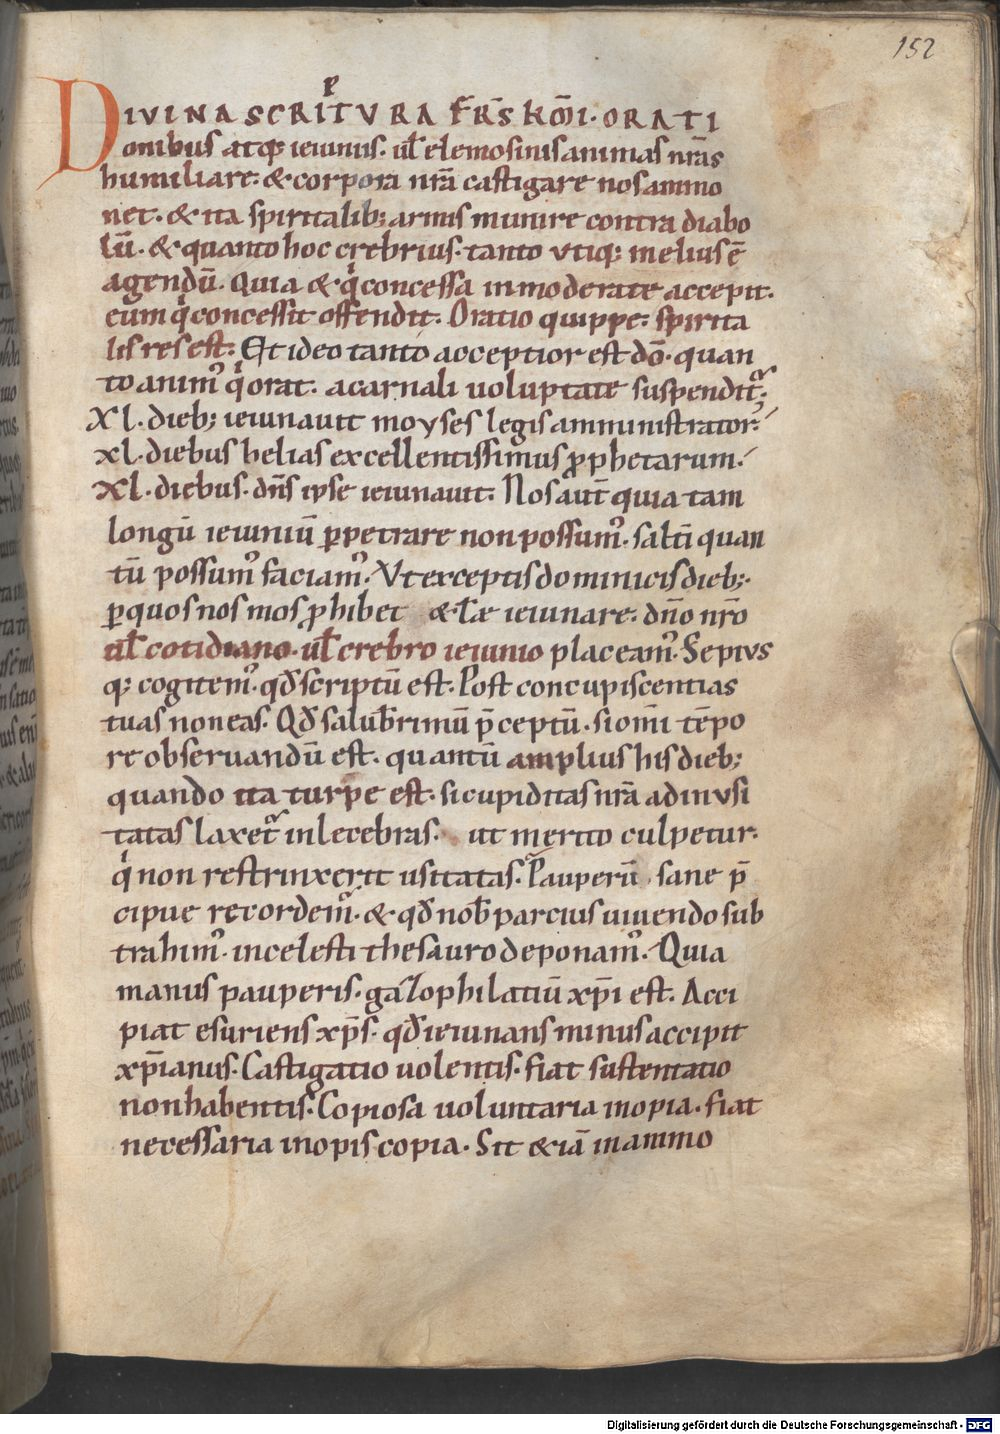 152
DIVINA SCRIPTVRA FRS̄ KM̄I. ORATI
onibus atq; ieiuniis. ul̄ elemosinis animas nr̄as
humiliare. & corpora nr̄a castigare nos ammo
net. & ita spiritalib; armis munire contra diabo
lū. & quanto hoc crebrius. tanto vtiq; melius ē
agendū. Quia & qͥ concessa inmoderate accepit.
eum qͥ concessit offendit. Oratio quippe. spirita
lis res est. Et ideo tanto acceptior est dō. quan
to animꝰ qͥ orat. a carnali uoluptate suspendit᷑;
Xl. dieb; ieiunauit moyses legis amministrator.
xl. diebus helias excellentissimus ꝓphetarum.
Xl. diebus. dn̄s ipse ieiunauit. Nos aut̄ quia tam
longū ieiuniū ꝑpetrare non possumꝰ. saltī quan
tū possumꝰ faciamꝰ. Vt exceptis dominicis dieb;.
ꝑ quos nos mos ꝓhibet &cl̄æ ieiunare. dn̄o nr̄o
ul̄ cotidiano. ul̄ crebro ieiunio placeamꝰ. Sepius
q; cogitemꝰ. qđ scriptū est. Post concupiscentias
tuas non eas. Qđ salub̄rimū p̄ceptū. si om̄i tēpo
re obseruandū est. quantū amplius his dieb;
quando ita turpe est. si cupiditas nr̄a ad inusi
tatas laxet᷑ inlecebras. ut merito culpetur.
qͥ non restrinxerit usitatas. Pauperū sane p̄
cipue recordemꝰ. & qđ nob̄ parcius uiuendo sub
trahimꝰ. in celesti thesauro deponamꝰ. Quia
manus pauperis. gazophilatiū xp̄i est. Acci
piat esuriens xp̄s. qđ ieiunans minus accipit
xp̄ianus. Castigatio uolentis. fiat sustentatio
non habentis. Copiosa uoluntaria inopia. fiat
necessaria inopis copia. Sit &iā in animo
Digitalisierung gefördert durch die Deutsche Forschungsgemeinschaft - DFG